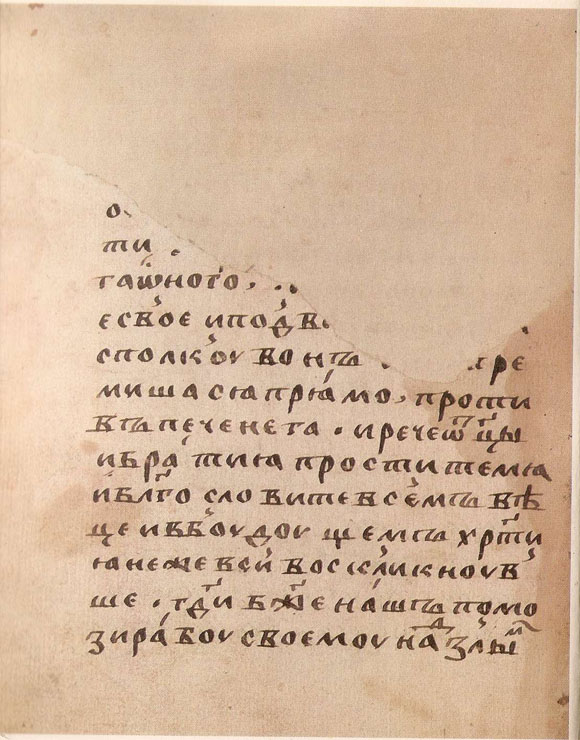 о
ти
таѿного, ..
есвое иподв
сполкоу вонъ . хре
мишасꙗ прꙗмо, проти
въ печенега . и рече ѿцы
и братиꙗ простите мꙗ
и блгословите в семъ вѣ
це и в боудоущемъ хрти
ꙗне же вси воскликноув
ше . гди бже нашъ помо
зи рабоу своемоу над злым